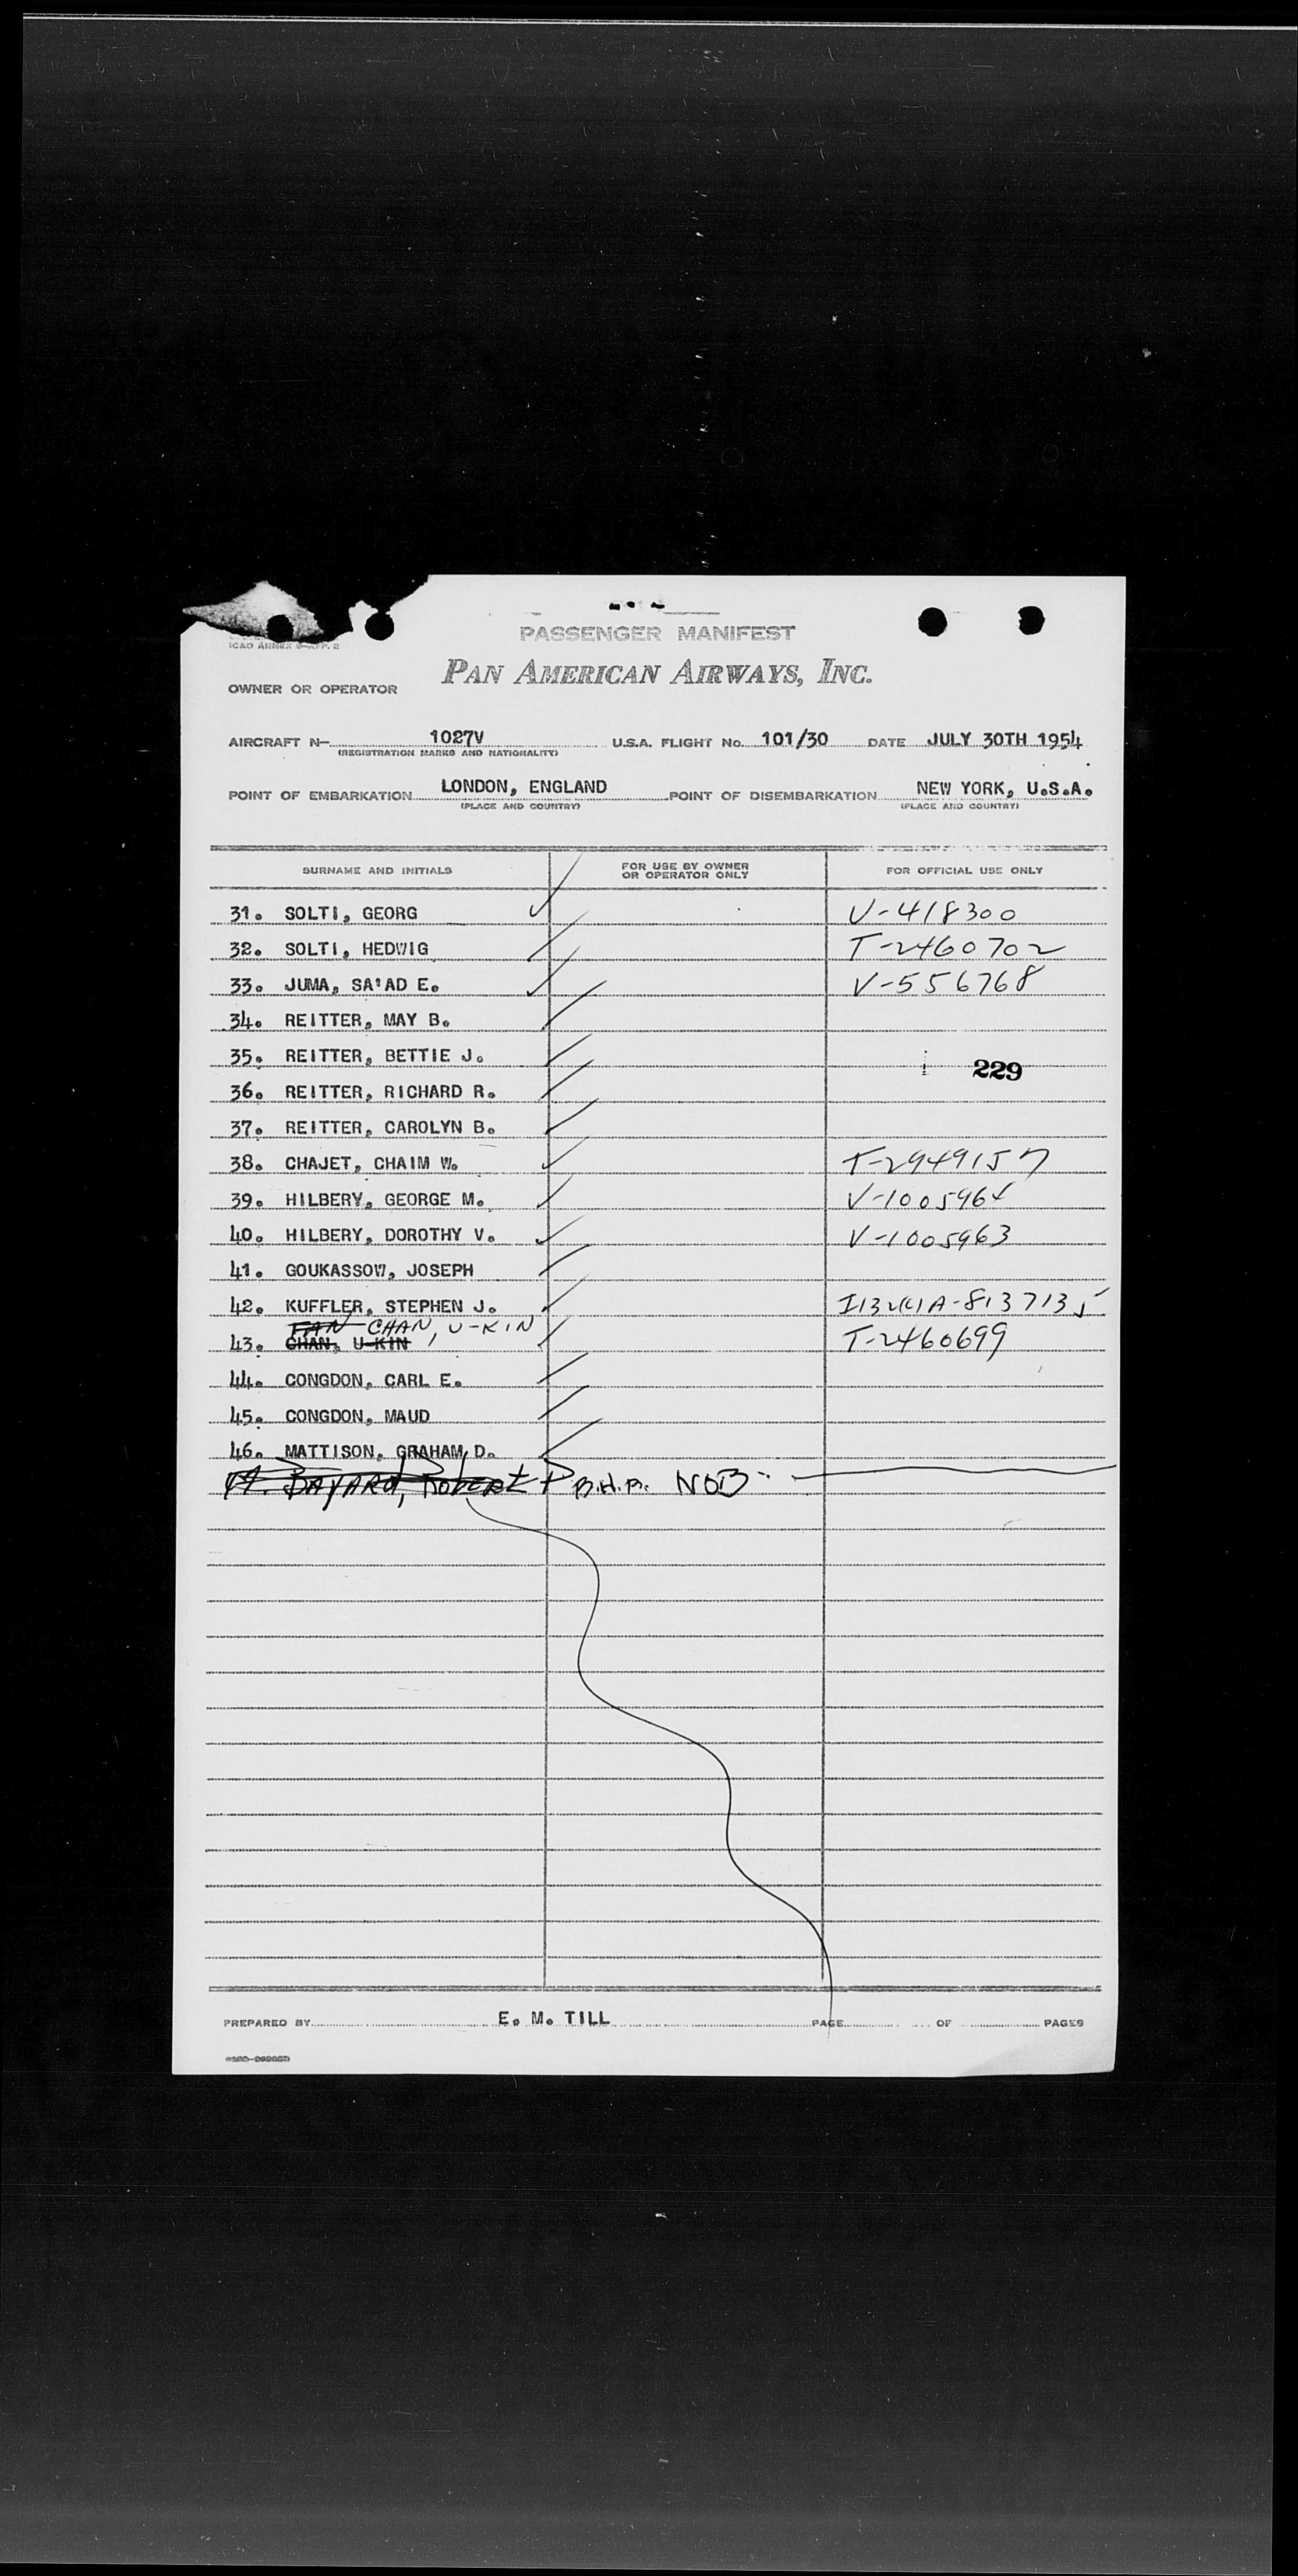 PASSENGER MANIFEST
ICAO ANNEX 9—APP. 2
PAN AMERICAN AIRWAYS, INC.
OWNER OR OPERATOR
AIRCRAFT N— 1027V U.S.A. FLIGHT No. 101/30 DATE JULY 30TH 1954
(REGISTRATION MARKS AND NATIONALITY)
POINT OF EMBARKATION LONDON, ENGLAND POINT OF DISEMBARKATION NEW YORK, U.S.A.
(PLACE AND COUNTRY) (PLACE AND COUNTRY)
SURNAME AND INITIALS FOR USE BY OWNER OR OPERATOR ONLY FOR OFFICIAL USE ONLY
31. SOLTI, GEORG V-418300
32. SOLTI, HEDWIG T-2460702
33. JUMA, SA'AD E. V-556768
34. REITTER, MAY B.
35. REITTER, BETTIE J. 229
36. REITTER, RICHARD R.
37. REITTER, CAROLYN B.
38. CHAJET, CHAIM W. T-2949157
39. HILBERY, GEORGE M. V-1005964
40. HILBERY, DOROTHY V. V-1005963
41. GOUKASSOW, JOSEPH
42. KUFFLER, STEPHEN J. I132(c)A-8137135
FAN CHAN, U-KIN
43. CHAN, U-KIN T-2460699
44. CONGDON, CARL E.
45. CONGDON, MAUD
46. MATTISON, GRAHAM D.
BAYARD, ROBERT P B.H.B. NOB
PREPARED BY E. M. TILL PAGE OF PAGES